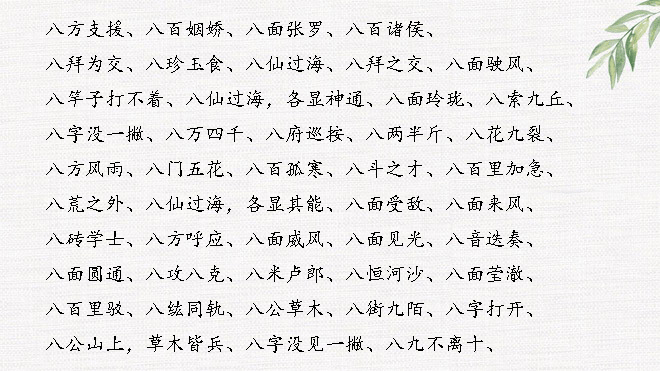 八方支援、八百姻娇、八面张罗、八百诸侯、
八拜为交、八珍玉食、八仙过海、八拜之交、八面驶风、
八竿子打不着、八仙过海，各显神通、八面玲珑、八索九丘、
八字没一撇、八万四千、八府巡按、八两半斤、八花九裂、
八方风雨、八门五花、八百孤寒、八斗之才、八百里加急、
八荒之外、八仙过海，各显其能、八面受敌、八面来风、
八砖学士、八方呼应、八面威风、八面见光、八音迭奏、
八面圆通、八攻八克、八米卢郎、八恒河沙、八面莹澈、
八百里驳、八纮同轨、八公草木、八街九陌、八字打开、
八公山上，草木皆兵、八字没见一撇、八九不离十、